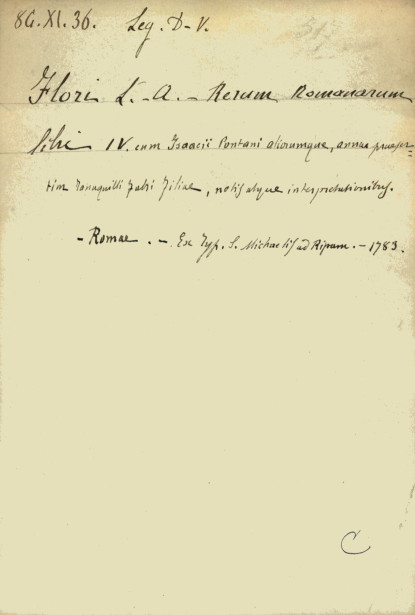 86.XI.36. Leg. D-V.
Flori L. - A. - Rerum Romanarum
libri IV. cum Isaacii Pontani aliorumque, annae praeser-
tim Tanaquilli Fabri Filiae, notis atque interpretationibus.
- Romae. - Ex Typ. S. Michaelis ad Ripam. - 1783.
C